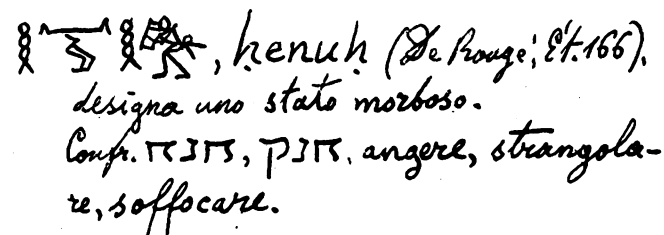 , ḥenuḥ (De Rougé, Ét. 166).
designa uno stato morboso.
Confr. חנח, חנק. angere, strangola-
re, soffocare.